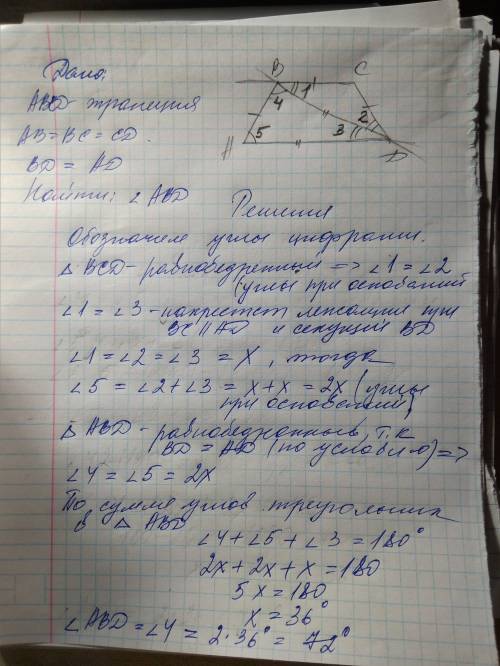 Дано:
ABCD - трапеция
AB = BC = CD.
BD = AD
Найти: ∠ABD
B C
4 1
2
A 5 3 D
Решения
Обозначем углы цифрами.
△ BCD - равнобедренный => ∠1 = ∠2
(углы при оснований
∠1 = ∠3 - накрест лежащие при
BC || AD и секущий BD
∠1 = ∠2 = ∠3 = x, тогда
∠5 = ∠2 + ∠3 = x + x = 2x (углы
при оснований)
△ ABD - равнобедренный, т.к
BD = AD (по условию) =>
∠4 = ∠5 = 2x
По сумме углов треугольник
в △ ABD
∠4 + ∠5 + ∠3 = 180°
2x + 2x + x = 180
5x = 180
x = 36°
∠ABD = ∠4 = 2·36° = 72°